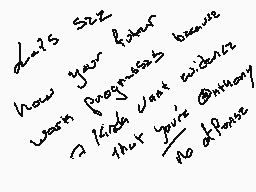 let's see
how your future
work progresses because
I kinda want evidence
that you're @nthony
no offense